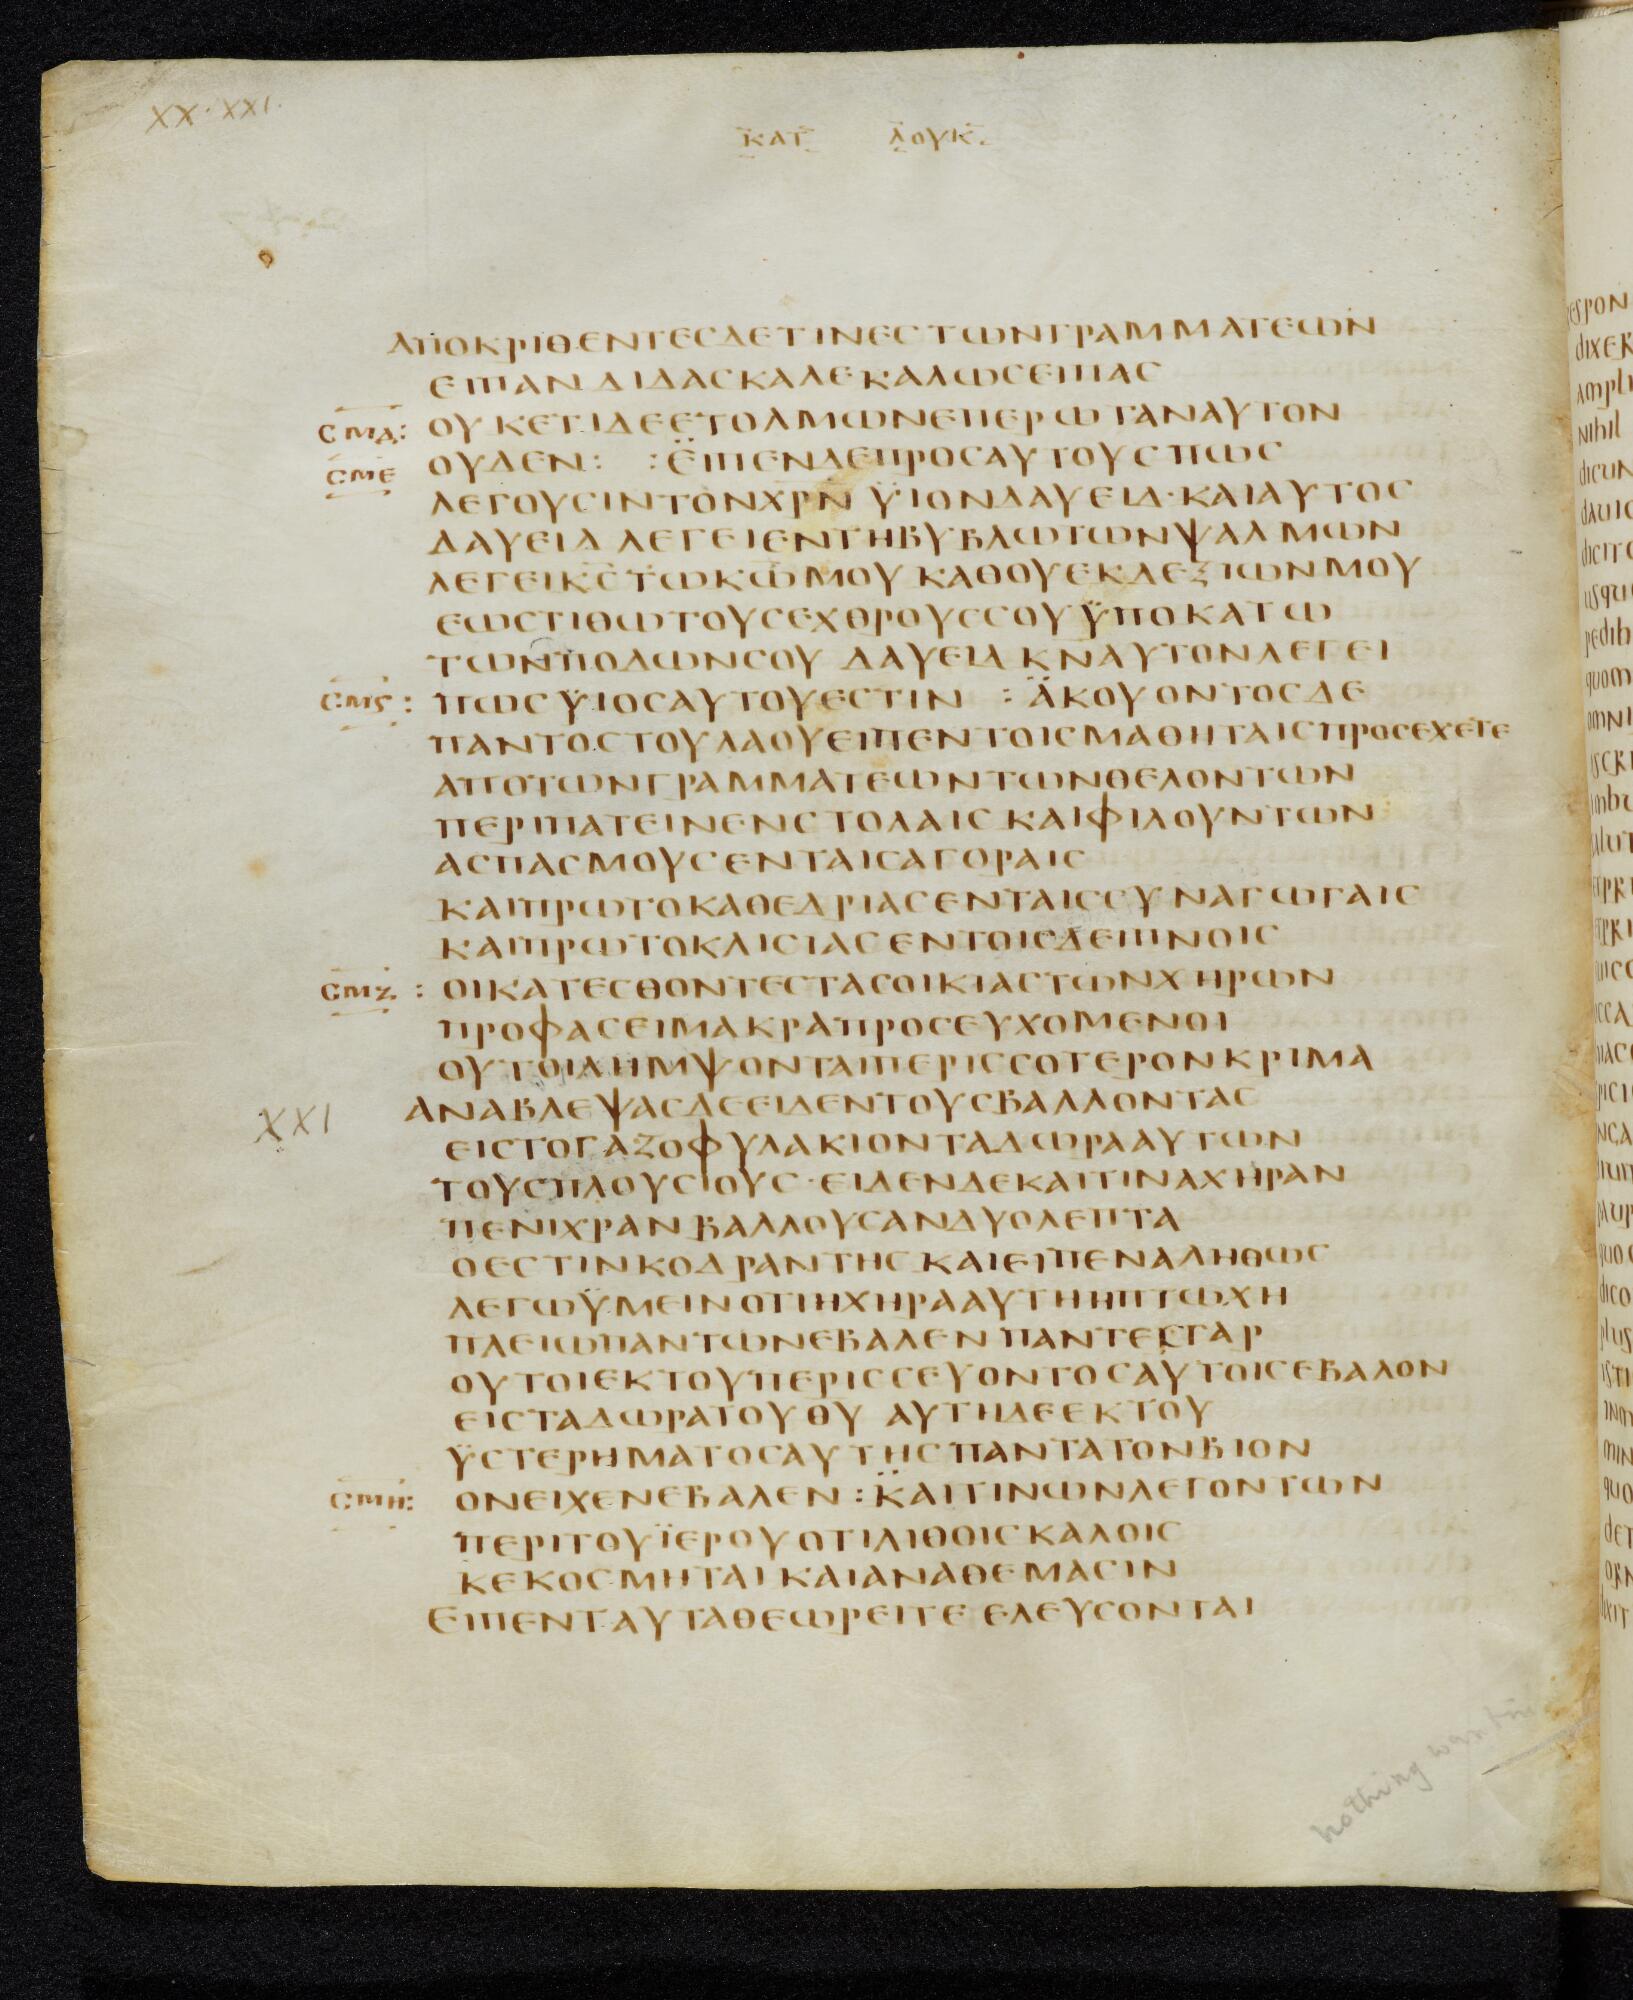 XX·XXI.
ΚΑΤ ΛΟΥΚ.
ΑΠΟΚΡΙΘΕΝΤΕCΔΕΤΙΝΕCΤΩΝΓΡΑΜΜΑΤΕΩΝ
ΕΙΠΑΝΔΙΔΑCΚΑΛΕΚΑΛΩCΕΙΠΑC
CΜΔ: ΟΥΚΕΤΙΔΕΕΤΟΛΜΩΝΕΠΕΡΩΤΑΝΑΥΤΟΝ
CΜΕ ΟΥΔΕΝ: :ΕΙΠΕΝΔΕΠΡΟCΑΥΤΟΥCΠΩC
ΛΕΓΟΥCΙΝΤΟΝΧΡΝ ΫΙΟΝΔΑΥΕΙΔ·ΚΑΙΑΥΤΟC
ΔΑΥΕΙΔ ΛΕΓΕΙΕΝΤΗΒΥΒΛΩΤΩΝΨΑΛΜΩΝ
ΛΕΓΕΙΚCΤΩΚΩΜΟΥ ΚΑΘΟΥΕΚΔΕΞΙΩΝΜΟΥ
ΕΩCΤΙΘΩΤΟΥCΕΧΘΡΟΥCCΟΥΫΠΟΚΑΤΩ
ΤΩΝΠΟΔΩΝCΟΥ ΔΑΥΕΙΔ ΚΝΑΥΤΟΝΛΕΓΕΙ
CΜϚ: ΠΩCΫΙΟCΑΥΤΟΥΕCΤΙΝ :ΑΚΟΥΟΝΤΟCΔΕ
ΠΑΝΤΟCΤΟΥΛΑΟΥΕΙΠΕΝΤΟΙCΜΑΘΗΤΑΙCΠΡΟCΕΧΕΤΕ
ΑΠΟΤΩΝΓΡΑΜΜΑΤΕΩΝΤΩΝΘΕΛΟΝΤΩΝ
ΠΕΡΙΠΑΤΕΙΝΕΝCΤΟΛΑΙCΚΑΙΦΙΛΟΥΝΤΩΝ
ΑCΠΑCΜΟΥCΕΝΤΑΙCΑΓΟΡΑΙC
ΚΑΙΠΡΩΤΟΚΑΘΕΔΡΙΑCΕΝΤΑΙCCΥΝΑΓΩΓΑΙC
ΚΑΙΠΡΩΤΟΚΛΙCΙΑCΕΝΤΟΙCΔΕΙΠΝΟΙC
CΜΖ: ΟΙΚΑΤΕCΘΟΝΤΕCΤΑCΟΙΚΙΑCΤΩΝΧΗΡΩΝ
ΠΡΟΦΑCΕΙΜΑΚΡΑΠΡΟCΕΥΧΟΜΕΝΟΙ
ΟΥΤΟΙΛΗΜΨΟΝΤΑΙΠΕΡΙCCΟΤΕΡΟΝΚΡΙΜΑ
XXI ΑΝΑΒΛΕΨΑCΔΕΕΙΔΕΝΤΟΥCΒΑΛΛΟΝΤΑC
ΕΙCΤΟΓΑΖΟΦΥΛΑΚΙΟΝΤΑΔΩΡΑΑΥΤΩΝ
ΤΟΥCΠΛΟΥCΙΟΥC·ΕΙΔΕΝΔΕΚΑΙΤΙΝΑΧΗΡΑΝ
ΠΕΝΙΧΡΑΝΒΑΛΛΟΥCΑΝΔΥΟΛΕΠΤΑ
ΟΕCΤΙΝΚΟΔΡΑΝΤΗCΚΑΙΕΙΠΕΝΑΛΗΘΩC
ΛΕΓΩΫΜΕΙΝΟΤΙΗΧΗΡΑΑΥΤΗΗΠΤΩΧΗ
ΠΛΕΙΩΠΑΝΤΩΝΕΒΑΛΕΝΠΑΝΤΕCΓΑΡ
ΟΥΤΟΙΕΚΤΟΥΠΕΡΙCCΕΥΟΝΤΟCΑΥΤΟΙCΕΒΑΛΟΝ
ΕΙCΤΑΔΩΡΑΤΟΥΘΥ ΑΥΤΗΔΕΕΚΤΟΥ
ΫCΤΕΡΗΜΑΤΟCΑΥΤΗCΠΑΝΤΑΤΟΝΒΙΟΝ
CΜΗ: ΟΝΕΙΧΕΝΕΒΑΛΕΝ:ΚΑΙΤΙΝΩΝΛΕΓΟΝΤΩΝ
ΠΕΡΙΤΟΥΪΕΡΟΥΟΤΙΛΙΘΟΙCΚΑΛΟΙC
ΚΕΚΟCΜΗΤΑΙΚΑΙΑΝΑΘΕΜΑCΙΝ
ΕΙΠΕΝΤΑΥΤΑΘΕΩΡΕΙΤΕ ΕΛΕΥCΟΝΤΑΙ
nothing